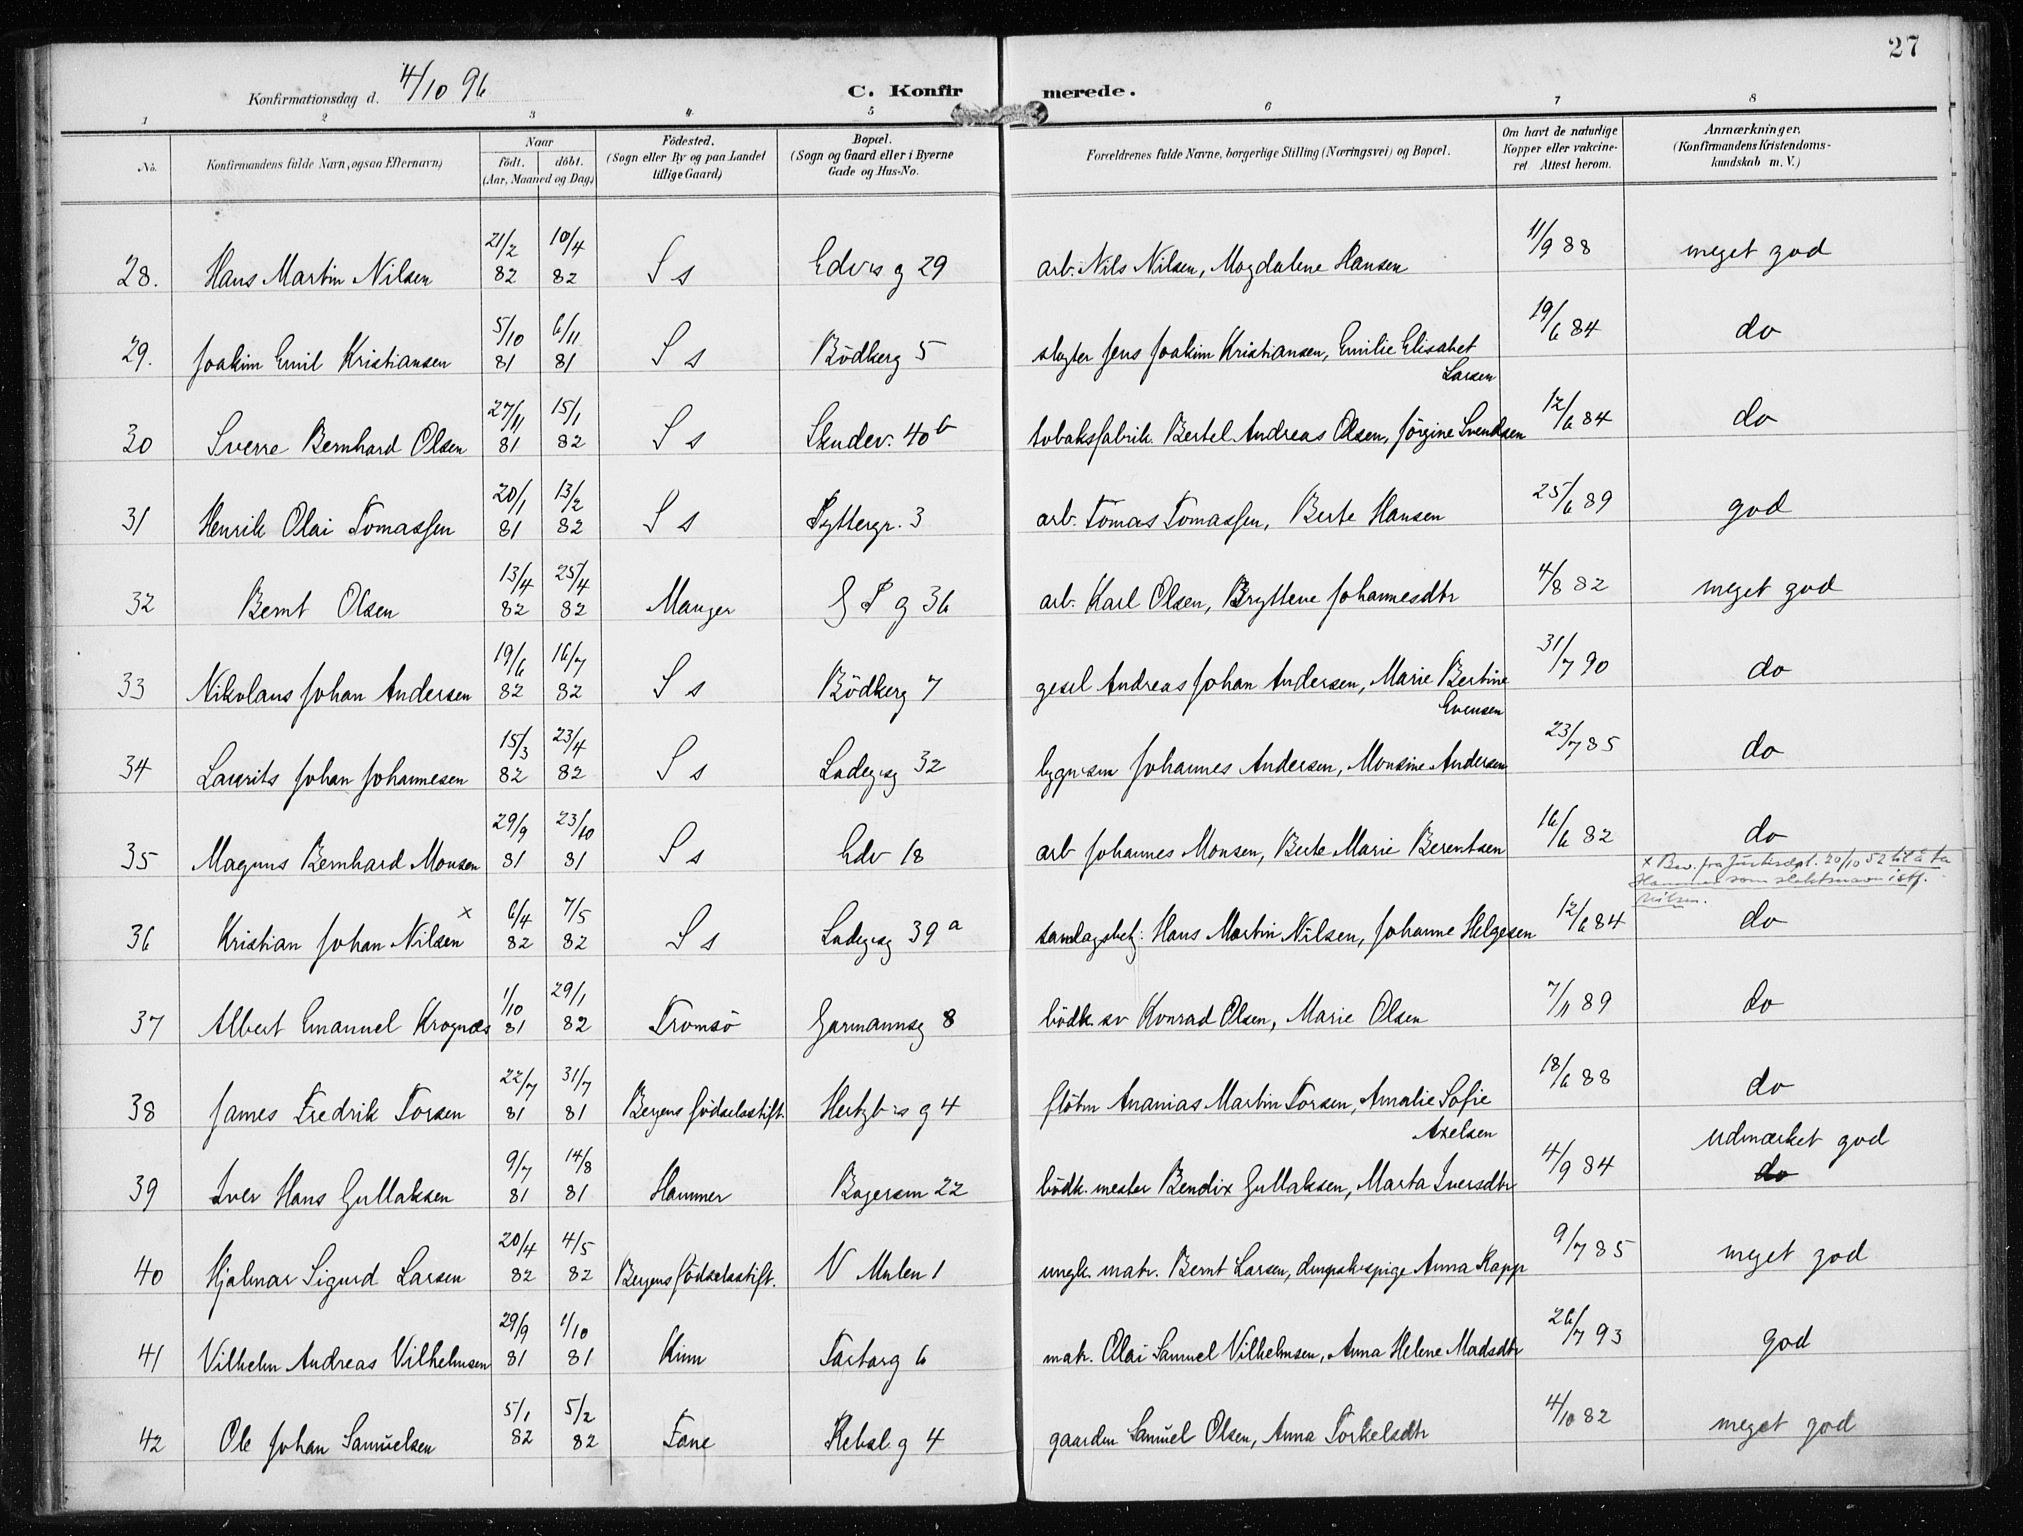 27
Konfirmationsdag d. 4/10 96
C. Konfirmerede.
1 2 3 4 5 6 7 8
No.
Konfirmandens fulde Navn, ogsaa Efternavn)
Naar
födt. döbt.
(Aar, Maaned og Dag)
Födested.
(Sogn eller By og paa Landet
tillige Gaard)
Bopæl.
(Sogn og Gaard eller i Byerne
Gade og Hus-No.
Forældrenes fulde Navne, borgerlige Stilling (Næringsvei) og Bopæl.
Om havt de naturlige
Kopper eller vakcine-
ret Attest herom.
Anmærkninger,
(Konfirmandens Kristendoms-
kundskab m. V.)
28. Hans Martin Nilsen 21/2 82 10/4 82 S s Edv's g 29 arb. Nils Nilsen, Magdalene Hansen 11/9 88 meget god
29. Joakim Emil Kristiansen 5/10 81 6/11 81 S s Bödkerg 5 slagter Jens Joakim Kristiansen, Emilie Elisabet 19/6 84 do
Larsen
30 Sverre Bernhard Olsen 27/11 81 15/1 82 S s Skudev. 40b tobaksfabrik. Bertel Andreas Olsen, Jörgine Svendsen 12/6 84 do
31 Henrik Olai Tomassen 20/1 81 13/2 82 S s Pyttergr. 3 arb. Tomas Tomassen, Berte Hansen 25/6 89 god
32 Bernt Olsen 13/4 82 25/4 82 Manger g 36 arb. Karl Olsen, Brytteve Johannesdtr 4/8 82 meget god
33 Nikolaus Johan Andersen 19/6 82 16/7 82 S s Bödkerg 7 gesel Andreas Johan Andersen, Marie Bertine 31/7 90 do
Evensen
34 Laurits Johan Johannesen 15/3 82 23/4 82 S s Ladegsg 32 bygnism Johannes Andersen, Monsine Andersen 23/7 85 do
35 Magnus Bernhard Monsen 29/9 81 23/10 81 S s Edv 18 arb Johannes Monsen, Berte Marie Berentsen 16/6 82 do
x Bev. fra Justisdept. 20/10 52 til å ta
Hammer som slektsnavn istf.
Nilsen.
36 Kristian Johan Nilsen x 6/4 82 7/5 82 S s Ladegsg 39a Hans Martin Nilsen, Johanne Helgesen 12/6 84 do
37 Albert Emanuel Krognæs 1/10 81 29/1 82 Tromsö Garmannsg 8 bödk. sv Konrad Olsen, Marie Olsen 7/11 89 do
38 James Fredrik Torsen 22/7 81 31/7 81 Bergens födselsstift. Hertzb's g 4 flötm Ananias Martin Torsen, Amalie Sofie 18/6 88 do
Axelsen
39 Iver Hans Gullaksen 9/7 81 14/8 81 Hammer Bagersm 22 bödk. mester Bendix Gullaksen, Marta Iversdtr 4/9 84 udmærket god
do
40 Hjalmar Sigurd Larsen 20/4 82 4/5 82 Bergens födselsstift. V Mulen 1 ungk. matr. Bernt Larsen, dampsk.spige Anna Rapp 9/7 85 meget god
41 Vilhelm Andreas Vilhelmsen 29/9 81 1/10 81 Kinn Tartarg 6 matr. Olai Samuel Vilhelmsen, Anna Helene Madsdtr 26/7 93 god
42 Ole Johan Samuelsen 5/1 82 5/2 82 Fane Rebsl. g 4 gaardm Samuel Olsen, Anna Torkelsdtr 4/10 82 meget god